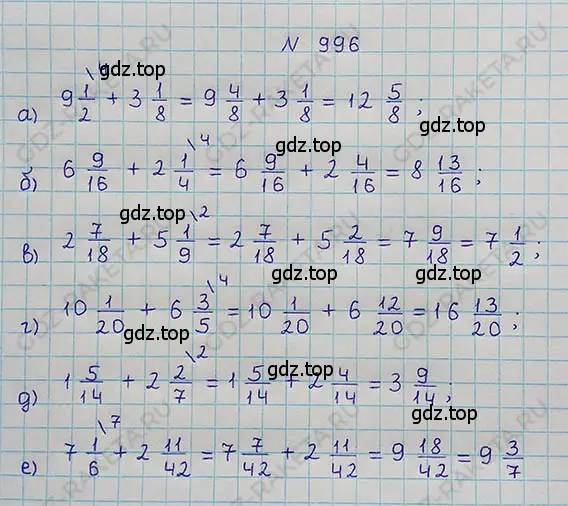 N 996
gdz.top
а) 9 1/2 \4 + 3 1/8 = 9 4/8 + 3 1/8 = 12 5/8 ;
gdz.top
б) 6 9/16 + 2 1/4 \4 = 6 9/16 + 2 4/16 = 8 13/16 ;
gdz.top
в) 2 7/18 + 5 1/9 \2 = 2 7/18 + 5 2/18 = 7 9/18 = 7 1/2 ;
gdz.top
г) 10 1/20 + 6 3/5 \4 = 10 1/20 + 6 12/20 = 16 13/20 ;
gdz.top
д) 1 5/14 + 2 2/7 \2 = 1 5/14 + 2 4/14 = 3 9/14 ;
gdz.top
е) 7 1/6 \7 + 2 11/42 = 7 7/42 + 2 11/42 = 9 18/42 = 9 3/7
gdz.top
GDZ-RAKETA.RU